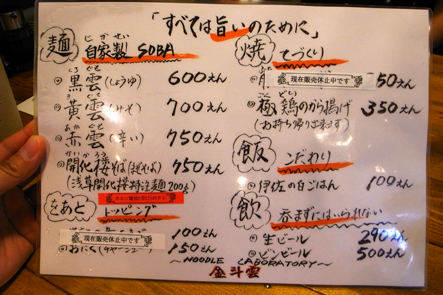 「すべては旨いのために」
麺 じかせい
自家製 SOBA
黒雲(しょうゆ) 600えん
黄雲(みそ) 700えん
赤雲(辛い) 750えん
開化楼そば(まぜそば) 750えん
(浅草開化楼特注麺200g)
トッピング
現在販売休止中です 100えん
おにく(チャーシュー) 150えん
焼 てづくり
現在販売休止中です 50えん
極 鶏のから揚げ 350えん
(お持ち帰り出来ます)
飯 こだわり
伊佐の白ごはん 100えん
飲 呑まずにはいられない
生ビール 290えん
ビンビール 500えん
~NOODLE LABORATORY~
金斗雲